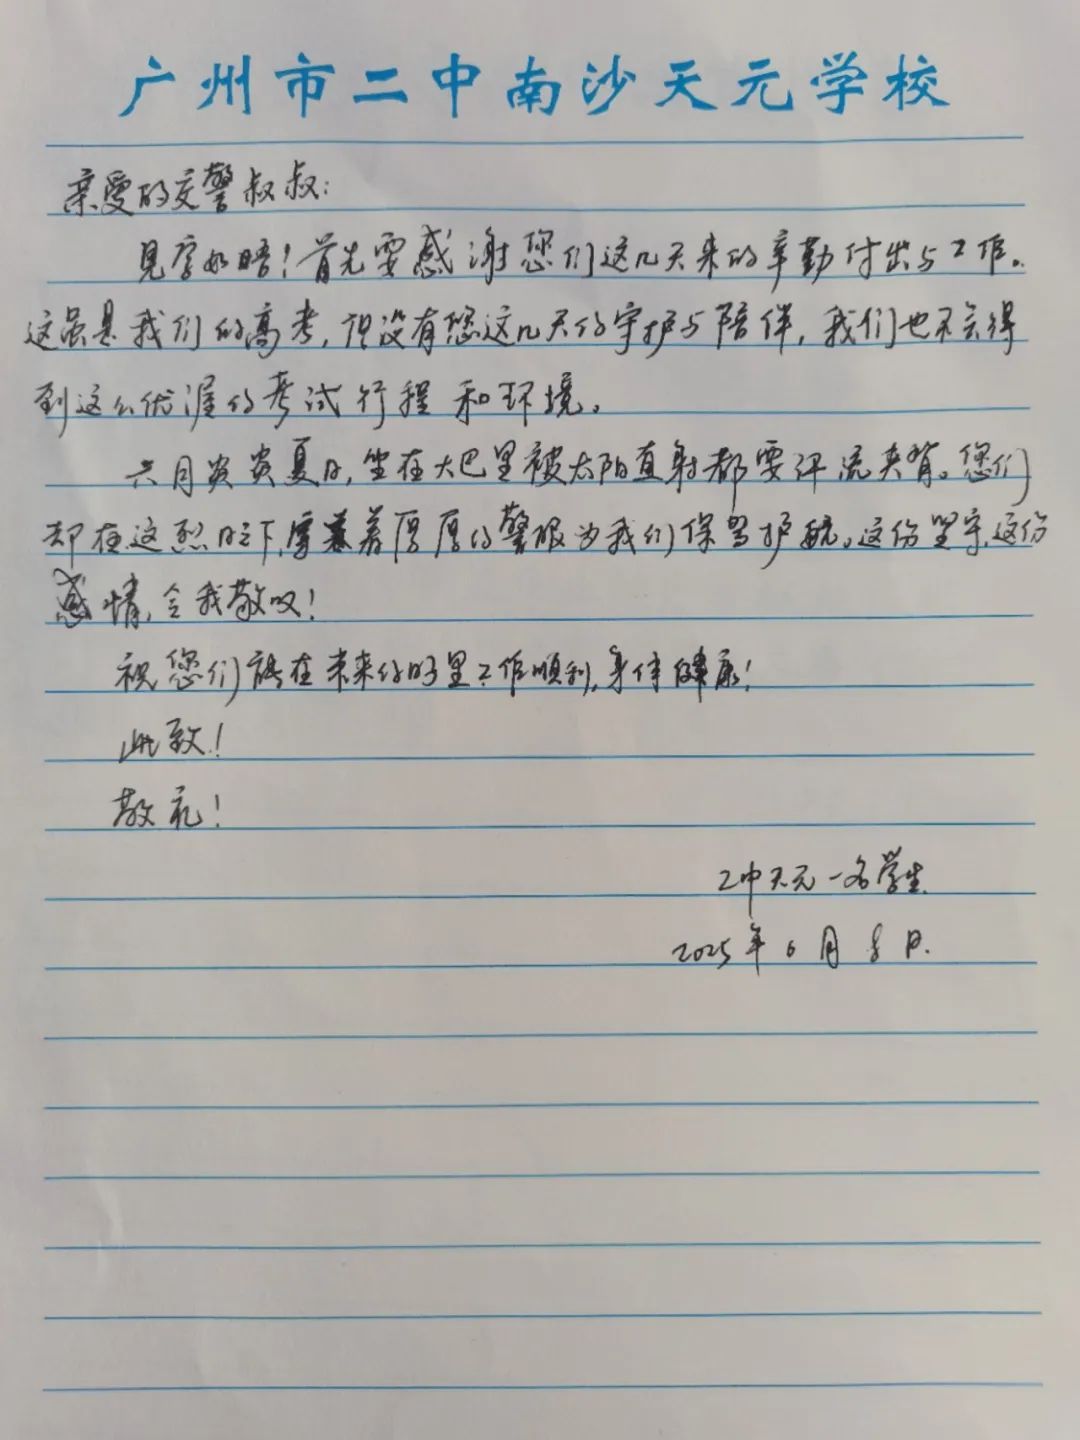 广州市二中南沙天元学校
亲爱的交警叔叔：
见字如晤！首先要感谢您们这几天来的辛勤付出与工作。
这虽是我们的高考，但没有您这几天的守护与陪伴，我们也不会得
到这么优渥的考试行程和环境。
六月炎炎夏日，坐在大巴里被太阳直射都要汗流夹背。您们
却在这烈日之下，穿着厚厚的警服为我们保驾护航。这份坚守，这份
感情，令我敬叹！
祝您们能在未来的日子里工作顺利，身体健康！
此致！
敬礼！
二中天元一名学生
2025年6月8日.